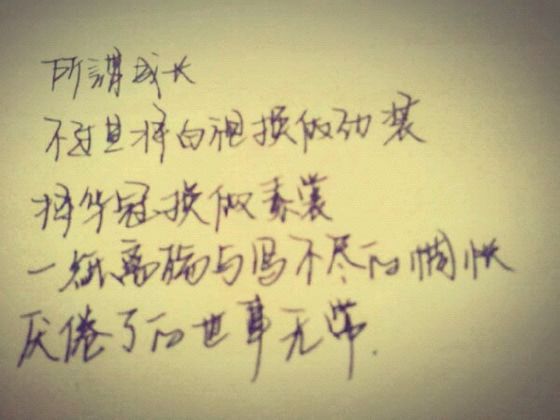 所謂成长
不过是将白袍换做劲装
将华冠换做素裳
一纸离骚与写不尽的惆怅
厌倦了的世事无常.